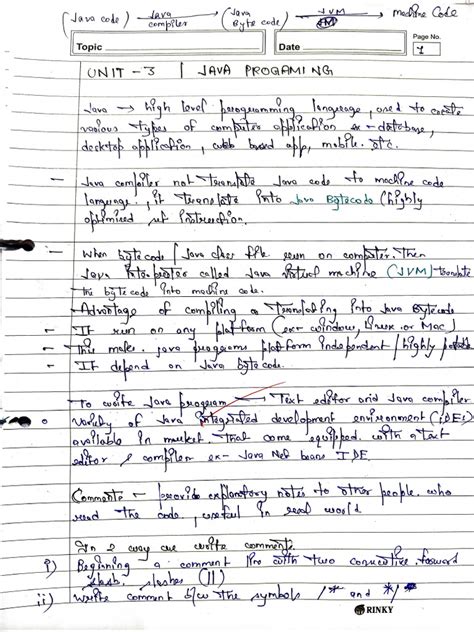 (Java code) → Java compiler → (Java Byte code) → JVM → machine Code
Topic Date Page No. 1
UNIT - 3 | JAVA PROGAMING
Java → high level programming language, used to create
various types of computer application ex - database,
desktop application, web based app, mobile. etc.
- Java compiler not translate Java code to machine code
language, it translate into Java Bytecode (highly
optimized set instruction.
- When bytecode / Java class file run on computer. then
Java interpreter called Java virtual machine (JVM) translate
the bytecode into machine code.
- Advantage of compiling or translating into Java Bytecode
- It run on any platform (ex- window, linux or Mac)
- This makes java programs platform independent / highly portable
- It depend on Java Bytecode.
To write Java program → Text editor and Java compiler
Variety of Java integrated development environment (IDEs)
available in market that come equipped with a text
editor & compiler ex- Java Net beans IDE
Comments - provide explanatory notes to other people who
read the code, useful in real world
In 2 way we write comments
i) Beginning a comment line with two consecutive forward
slash. slashes (//)
ii) Write comment b/w the symbols /* and */
RINKY